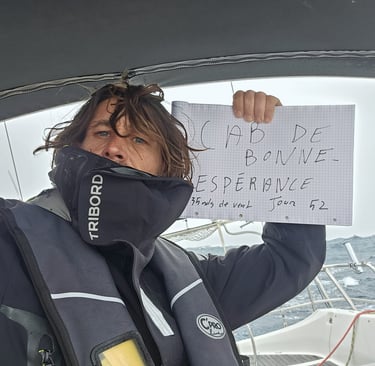 CAB DE
BONNE-
ESPÉRANCE
35 nds de vent Jour 52
TRIBORD
C'PRO